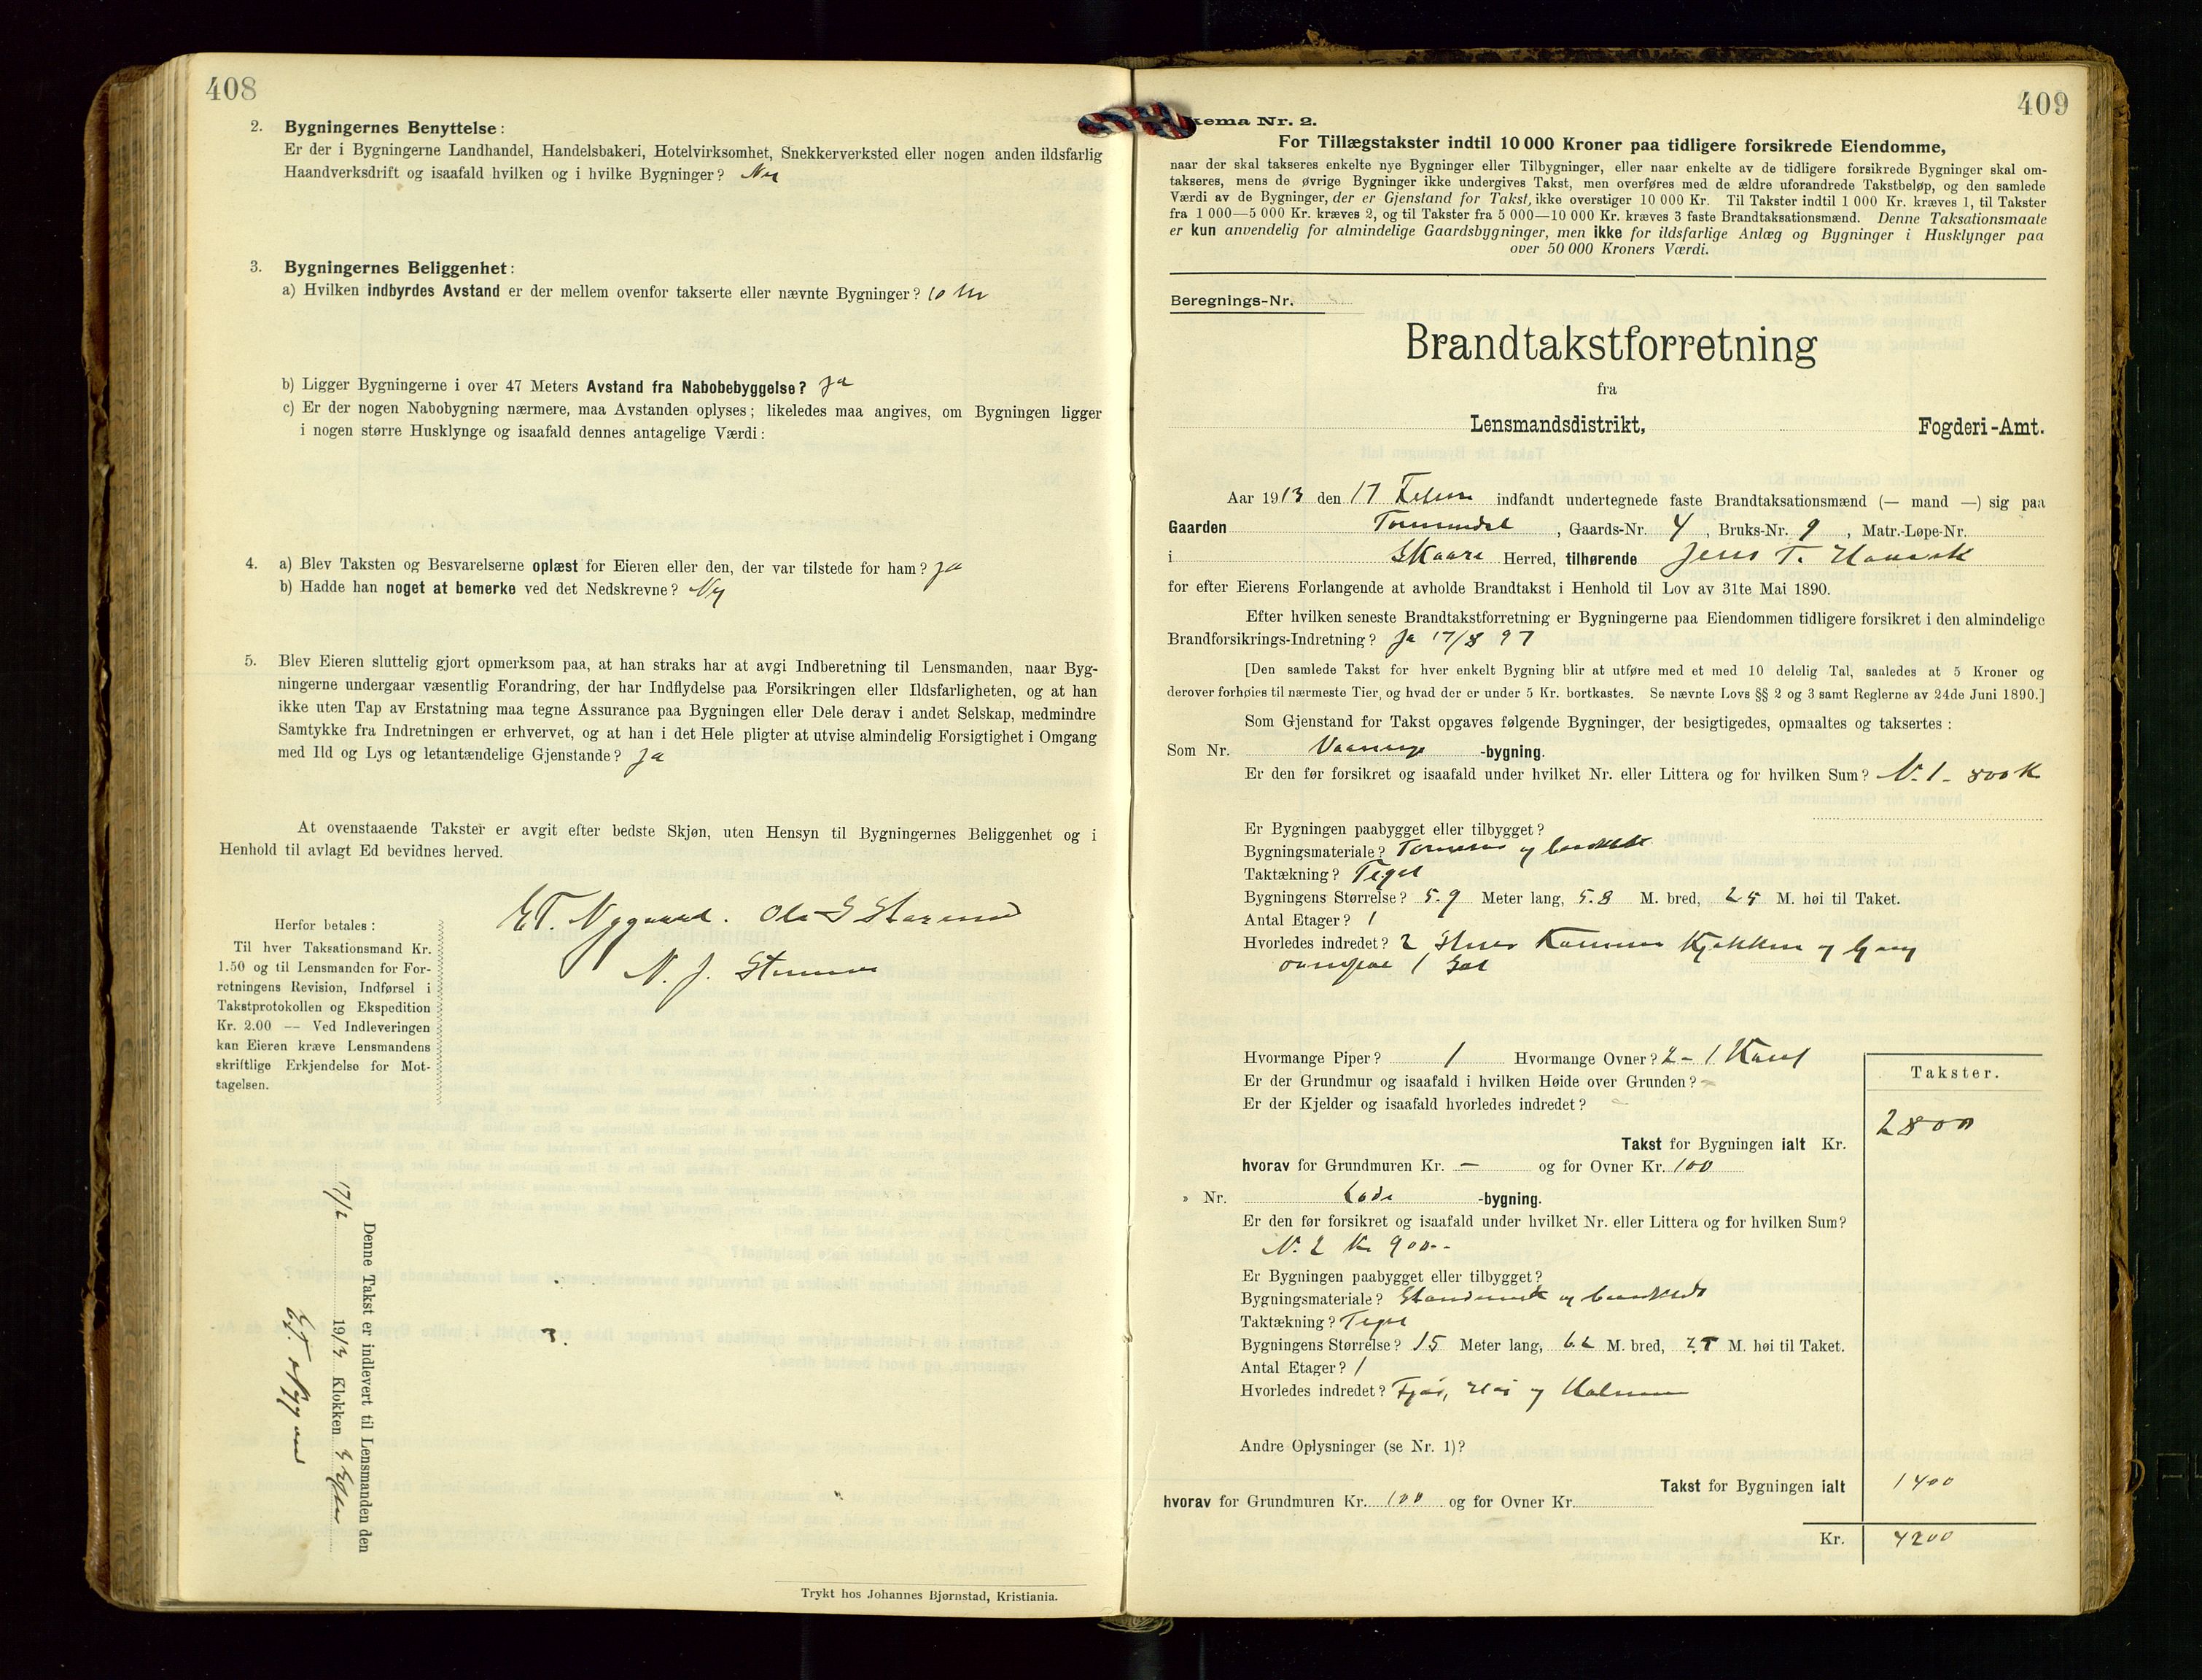 408
2. Bygningernes Benyttelse:
Er der i Bygningerne Landhandel, Handelsbakeri, Hotelvirksomhet, Snekkerverksted eller nogen anden ildsfarlig
Haandverksdrift og isaafald hvilken og i hvilke Bygninger?
3. Bygningernes Beliggenhet:
a) Hvilken indbyrdes Avstand er der mellem ovenfor takserte eller nævnte Bygninger? 10 M
b) Ligger Bygningerne i over 47 Meters Avstand fra Nabobebyggelse? Ja
c) Er der nogen Nabobygning nærmere, maa Avstanden oplyses; likeledes maa angives, om Bygningen ligger
i nogen større Husklynge og isaafald dennes antagelige Værdi:
4. a) Blev Taksten og Besvarelserne oplæst for Eieren eller den, der var tilstede for ham? Ja
b) Hadde han noget at bemerke ved det Nedskrevne?
5. Blev Eieren sluttelig gjort opmerksom paa, at han straks har at avgi Indberetning til Lensmanden, naar Byg-
ningerne undergaar væsentlig Forandring, der har Indflydelse paa Forsikringen eller Ildsfarligheten, og at han
ikke uten Tap av Erstatning maa tegne Assurance paa Bygningen eller Dele derav i andet Selskap, medmindre
Samtykke fra Indretningen er erhvervet, og at han i det Hele pligter at utvise almindelig Forsigtighet i Omgang
med Ild og Lys og letantændelige Gjenstande? Ja
At ovenstaaende Takster er avgit efter bedste Skjøn, uten Hensyn til Bygningernes Beliggenhet og i
Henhold til avlagt Ed bevidnes herved.
E.T. Nygaard. Ola S
N. J.
Herfor betales:
Til hver Taksationsmand Kr.
1.50 og til Lensmanden for For-
retningens Revision, Indførsel i
Takstprotokollen og Ekspedition
Kr. 2.00 — Ved Indleveringen
kan Eieren kræve Lensmandens
skriftlige Erkjendelse for Mot-
tagelsen.
Denne Takst er indlevert til Lensmanden den
17/2 1913 Klokken
E.T. Nygaard
Trykt hos Johannes Bjørnstad, Kristiania.
409
kema Nr. 2.
For Tillægstakster indtil 10 000 Kroner paa tidligere forsikrede Eiendomme,
naar der skal takseres enkelte nye Bygninger eller Tilbygninger, eller naar enkelte av de tidligere forsikrede Bygninger skal om-
takseres, mens de øvrige Bygninger ikke undergives Takst, men overføres med de ældre uforandrede Takstbeløp, og den samlede
Værdi av de Bygninger, der er Gjenstand for Takst, ikke overstiger 10 000 Kr. Til Takster indtil 1 000 Kr. kræves 1, til Takster
fra 1 000—5 000 Kr. kræves 2, og til Takster fra 5 000—10 000 Kr. kræves 3 faste Brandtaksationsmænd. Denne Taksationsmaate
er kun anvendelig for almindelige Gaardsbygninger, men ikke for ildsfarlige Anlæg og Bygninger i Husklynger paa
over 50 000 Kroners Værdi.
Beregnings-Nr.
Brandtakstforretning
fra
Lensmandsdistrikt, Fogderi - Amt.
Aar 1913 den 17 indfandt undertegnede faste Brandtaksationsmænd (— mand —) sig paa
Gaarden , Gaards-Nr. 4, Bruks-Nr. 9, Matr.-Løpe-Nr.
i Skaare Herred, tilhørende Jens T.
for efter Eierens Forlangende at avholde Brandtakst i Henhold til Lov av 31te Mai 1890.
Efter hvilken seneste Brandtakstforretning er Bygningerne paa Eiendommen tidligere forsikret i den almindelige
Brandforsikrings-Indretning? Ja 17/8 97
[Den samlede Takst for hver enkelt Bygning blir at utføre med et med 10 delelig Tal, saaledes at 5 Kroner og
derover forhøies til nærmeste Tier, og hvad der er under 5 Kr. bortkastes. Se nævnte Lovs §§ 2 og 3 samt Reglerne av 24de Juni 1890.]
Som Gjenstand for Takst opgaves følgende Bygninger, der besigtigedes, opmaaltes og taksertes:
Som Nr. Vaanings -bygning.
Er den før forsikret og isaafald under hvilket Nr. eller Littera og for hvilken Sum? N. 1 - 800 K
Er Bygningen paabygget eller tilbygget?
Bygningsmateriale? Tømmer og bordklædt
Taktækning? Tegel
Bygningens Størrelse? 5.9 Meter lang, 5.8 M. bred, 25 M. høi til Taket.
Antal Etager? 1
Hvorledes indredet? 2 Stuer Kammer Kjøkken og Gang
ovenpaa 1 Sal
Hvormange Piper? 1 Hvormange Ovner? 2 - 1 Komf
Er der Grundmur og isaafald i hvilken Høide over Grunden? -
Er der Kjelder og isaafald hvorledes indredet? -
Takster.
Takst for Bygningen ialt Kr. 2800
hvorav for Grundmuren Kr. — og for Ovner Kr. 100
» Nr. Lade -bygning.
Er den før forsikret og isaafald under hvilket Nr. eller Littera og for hvilken Sum?
N. 2 Kr 900 --
Er Bygningen paabygget eller tilbygget?
Bygningsmateriale? og bordklædt
Taktækning? Tegel
Bygningens Størrelse? 15 Meter lang, 6.2 M. bred, M. høi til Taket.
Antal Etager? 1
Hvorledes indredet? Fjøs, og
Andre Oplysninger (se Nr. 1)?
Takst for Bygningen ialt 1400
hvorav for Grundmuren Kr. 100 og for Ovner Kr.
Kr. 4200